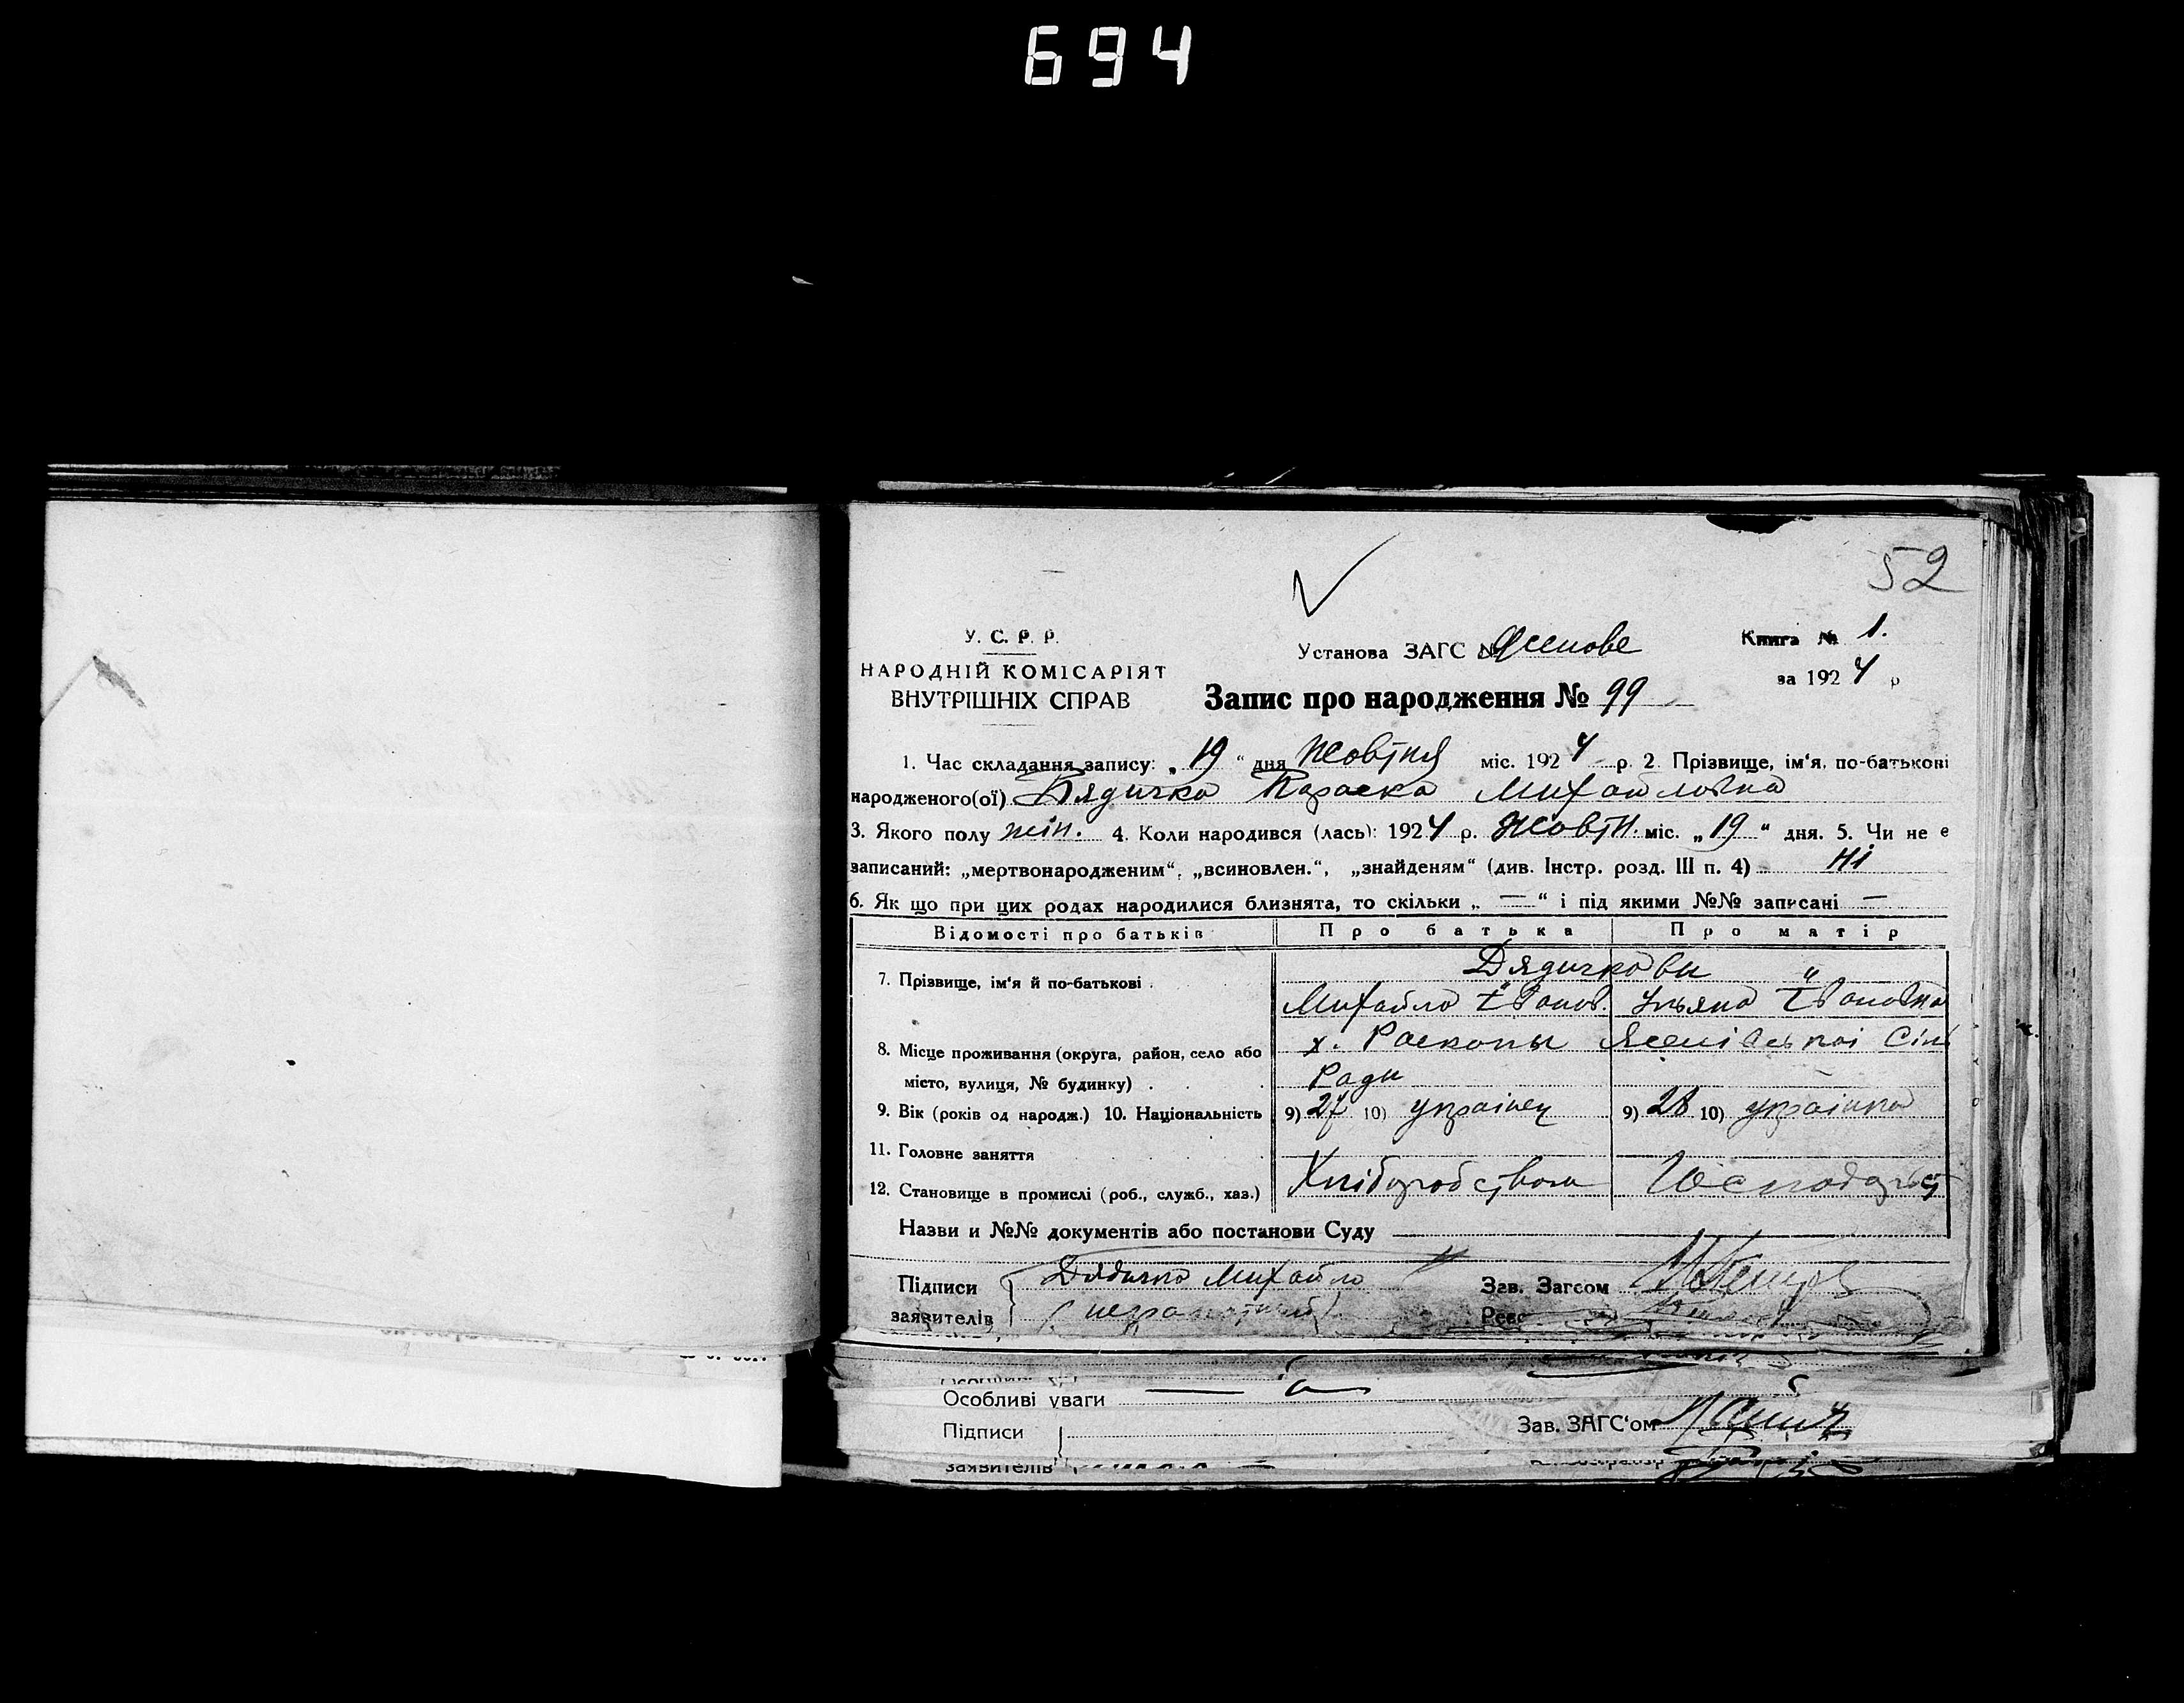 694
52
У. С. Р. Р.
НАРОДНІЙ КОМІСАРІЯТ
ВНУТРІШНІХ СПРАВ
Установа ЗАГС № Ясенове
Книга № 1.
за 1924 р
Запис про народження № 99
1. Час складання запису: „19“ дня Жовтня міс. 1924 р. 2. Прізвище, ім‘я, по-батькові
народженого(ої) Дядичко Параска Михайловна
3. Якого полу жін. 4. Коли народився (лась): 1924 р. Жовтн. міс. „19“ дня. 5. Чи не є
записаний: „мертвонародженим“, „всиновлен.“, „знайденям“ (див. Інстр. розд. III п. 4) Ні
6. Як що при цих родах народилися близнята, то скільки „—“ і під якими №№ записані —
Відомості про батьків Про батька Про матір
Дядичкови
7. Прізвище, ім‘я й по-батькові
Михайло Їванов. Ульяна Ївановна
8. Місце проживання (округа, район, село або х. Раскопы Ясенівської Сіль
місто, вулиця, № будинку) Ради
9. Вік (років од народж.) 10. Національність 9) 27 10) українец 9) 28 10) українка
11. Головне заняття
12. Становище в промислі (роб., служб., хаз.) Хліборобством
Назви и №№ документів або постанови Суду
Підписи Дядичко Михайло Зав. Загсом
заявителів (неграмотний)
Особливі уваги
Підписи Зав. ЗАГС‘ом
заявителів